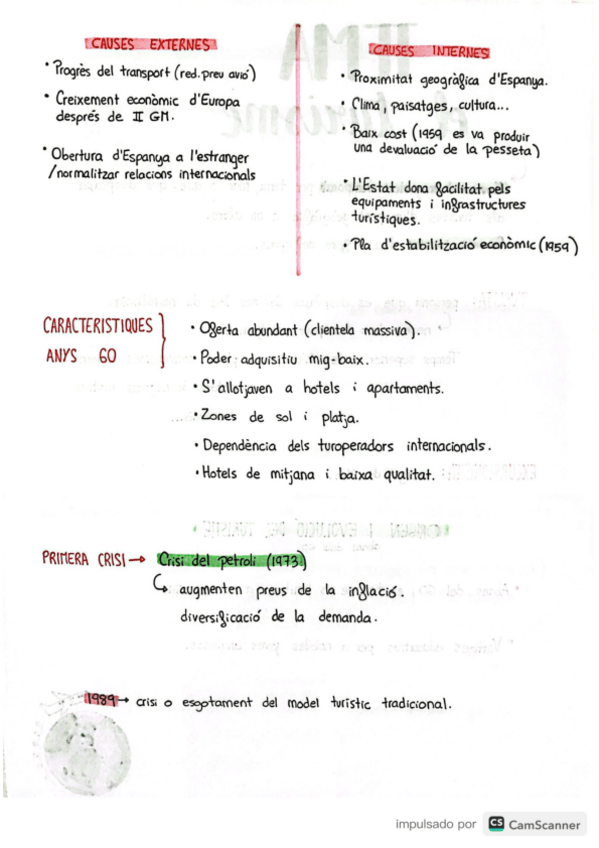 CAUSES EXTERNES
· Progrès del transport (red. preu avió)
· Creixement econòmic d'Europa
després de II GM.
· Obertura d'Espanya a l'estranger
/normalitzar relacions internacionals
CAUSES INTERNES
· Proximitat geogràfica d'Espanya.
· Clima, paisatges, cultura...
· Baix cost (1959 es va produir
una devaluació de la pesseta)
· L'Estat dona facilitat pels
equipaments i infrastructures
turístiques.
· Pla d'estabilització econòmic (1959)
CARACTERISTIQUES
ANYS 60
· Oferta abundant (clientela massiva).
· Poder adquisitiu mig-baix.
· S'allotjaven a hotels i apartaments.
· Zones de sol i platja.
· Dependència dels turoperadors internacionals.
· Hotels de mitjana i baixa qualitat.
PRIMERA CRISI → Crisi del petroli (1973)
↳ augmenten preus de la inflació.
diversificació de la demanda.
1989 → crisi o esgotament del model turístic tradicional.
impulsado por CS CamScanner